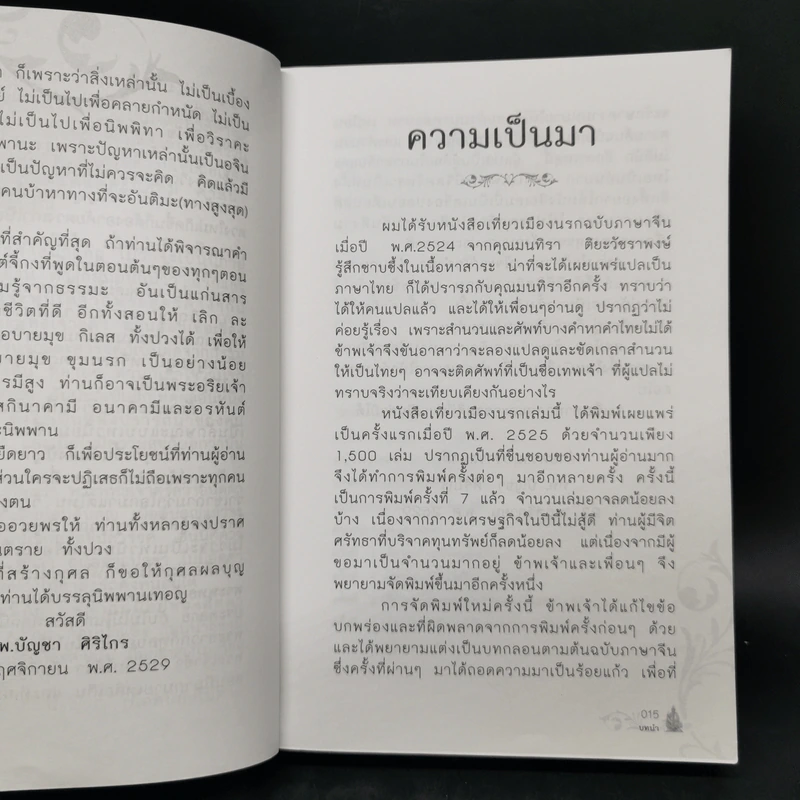 ก็เพราะว่าสิ่งเหล่านั้น ไม่เป็นเบื้อง
ไม่เป็นไปเพื่อคลายกำหนัด ไม่เป็น
ไม่เป็นไปเพื่อนิพพิทา เพื่อวิราคะ
พานะ เพราะปัญหาเหล่านั้นเป็นอจิน
เป็นปัญหาที่ไม่ควรจะคิด คิดแล้วมี
คนบ้าหาทางที่จะอันติมะ(ทางสูงสุด)
ที่สำคัญที่สุด ถ้าท่านได้พิจารณาคำ
ต์จี้กงที่พูดในตอนต้นๆของทุกๆตอน
มรู้จากธรรมะ อันเป็นแก่นสาร
ชีวิตที่ดี อีกทั้งสอนให้ เลิก ละ
อบายมุข กิเลส ทั้งปวงได้ เพื่อให้
บายมุข ขุมนรก เป็นอย่างน้อย
รมีสูง ท่านก็อาจเป็นพระอริยเจ้า
สกิทาคามี อนาคามีและอรหันต์
ะนิพพาน
ยืดยาว ก็เพื่อประโยชน์ที่ท่านผู้อ่าน
ส่วนใครจะปฏิเสธก็ไม่ถือเพราะทุกคน
งตน
ออวยพรให้ ท่านทั้งหลายจงปราศ
นตราย ทั้งปวง
ที่สร้างกุศล ก็ขอให้กุศลผลบุญ
ท่านได้บรรลุนิพพานเทอญ
สวัสดี
พ.บัญชา ศิริไกร
ฤศจิกายน พ.ศ. 2529
ความเป็นมา
ผมได้รับหนังสือเที่ยวเมืองนรกฉบับภาษาจีน
เมื่อปี พ.ศ.2524 จากคุณมนทิรา ติยะวัชราพงษ์
รู้สึกซาบซึ้งในเนื้อหาสาระ น่าที่จะได้เผยแพร่แปลเป็น
ภาษาไทย ก็ได้ปรารภกับคุณมนทิราอีกครั้ง ทราบว่า
ได้ให้คนแปลแล้ว และได้ให้เพื่อนๆอ่านดู ปรากฏว่าไม่
ค่อยรู้เรื่อง เพราะสำนวนและศัพท์บางคำหาคำไทยไม่ได้
ข้าพเจ้าจึงขันอาสาว่าจะลองแปลดูและขัดเกลาสำนวน
ให้เป็นไทยๆ อาจจะติดศัพท์ที่เป็นชื่อเทพเจ้า ที่ผู้แปลไม่
ทราบจริงว่าจะเทียบเคียงกันอย่างไร
หนังสือเที่ยวเมืองนรกเล่มนี้ ได้พิมพ์เผยแพร่
เป็นครั้งแรกเมื่อปี พ.ศ. 2525 ด้วยจำนวนเพียง
1,500 เล่ม ปรากฏเป็นที่ชื่นชอบของท่านผู้อ่านมาก
จึงได้ทำการพิมพ์ครั้งต่อๆ มาอีกหลายครั้ง ครั้งนี้
เป็นการพิมพ์ครั้งที่ 7 แล้ว จำนวนเล่มอาจลดน้อยลง
บ้าง เนื่องจากภาวะเศรษฐกิจในปีนี้ไม่สู้ดี ท่านผู้มีจิต
ศรัทธาที่บริจาคทุนทรัพย์ก็ลดน้อยลง แต่เนื่องจากมีผู้
ขอมาเป็นจำนวนมากอยู่ ข้าพเจ้าและเพื่อนๆ จึง
พยายามจัดพิมพ์ขึ้นมาอีกครั้งหนึ่ง
การจัดพิมพ์ใหม่ครั้งนี้ ข้าพเจ้าได้แก้ไขข้อ
บกพร่องและที่ผิดพลาดจากการพิมพ์ครั้งก่อนๆ ด้วย
และได้พยายามแต่งเป็นบทกลอนตามต้นฉบับภาษาจีน
ซึ่งครั้งที่ผ่านๆ มาได้ถอดความมาเป็นร้อยแก้ว เพื่อที่
015
บทนำ